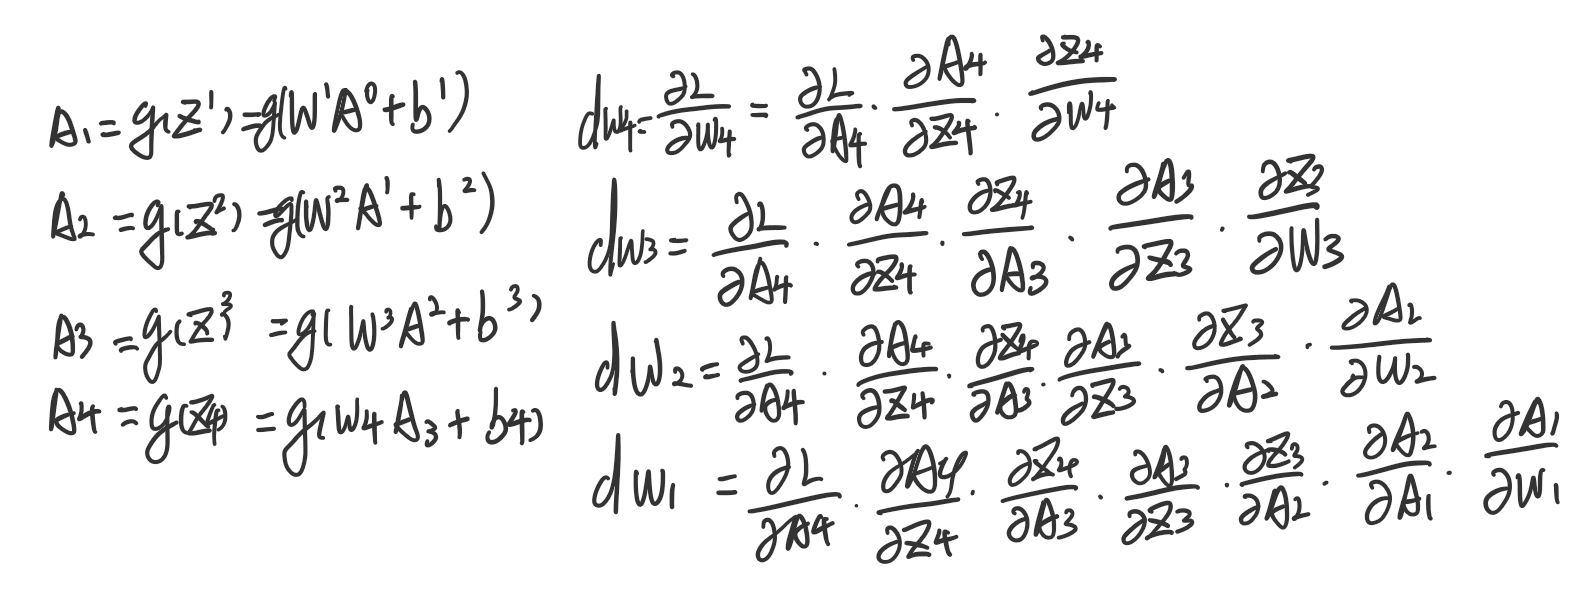 A₁ = g(z¹) = g(W¹A⁰ + b¹)
A₂ = g(z²) = g(W²A¹ + b²)
A₃ = g(z³) = g(W³A² + b³)
A₄ = g(z₄) = g(W₄A₃ + b₄)
dw₄ = ∂L/∂W₄ = ∂L/∂A₄ · ∂A₄/∂Z₄ · ∂Z₄/∂W₄
dw₃ = ∂L/∂A₄ · ∂A₄/∂Z₄ · ∂Z₄/∂A₃ · ∂A₃/∂Z₃ · ∂Z₃/∂W₃
dW₂ = ∂L/∂A₄ · ∂A₄/∂Z₄ · ∂Z₄/∂A₃ · ∂A₃/∂Z₃ · ∂Z₃/∂A₂ · ∂A₂/∂W₂
dW₁ = ∂L/∂A₄ · ∂A₄/∂Z₄ · ∂Z₄/∂A₃ · ∂A₃/∂Z₃ · ∂Z₃/∂A₂ · ∂A₂/∂A₁ · ∂A₁/∂W₁